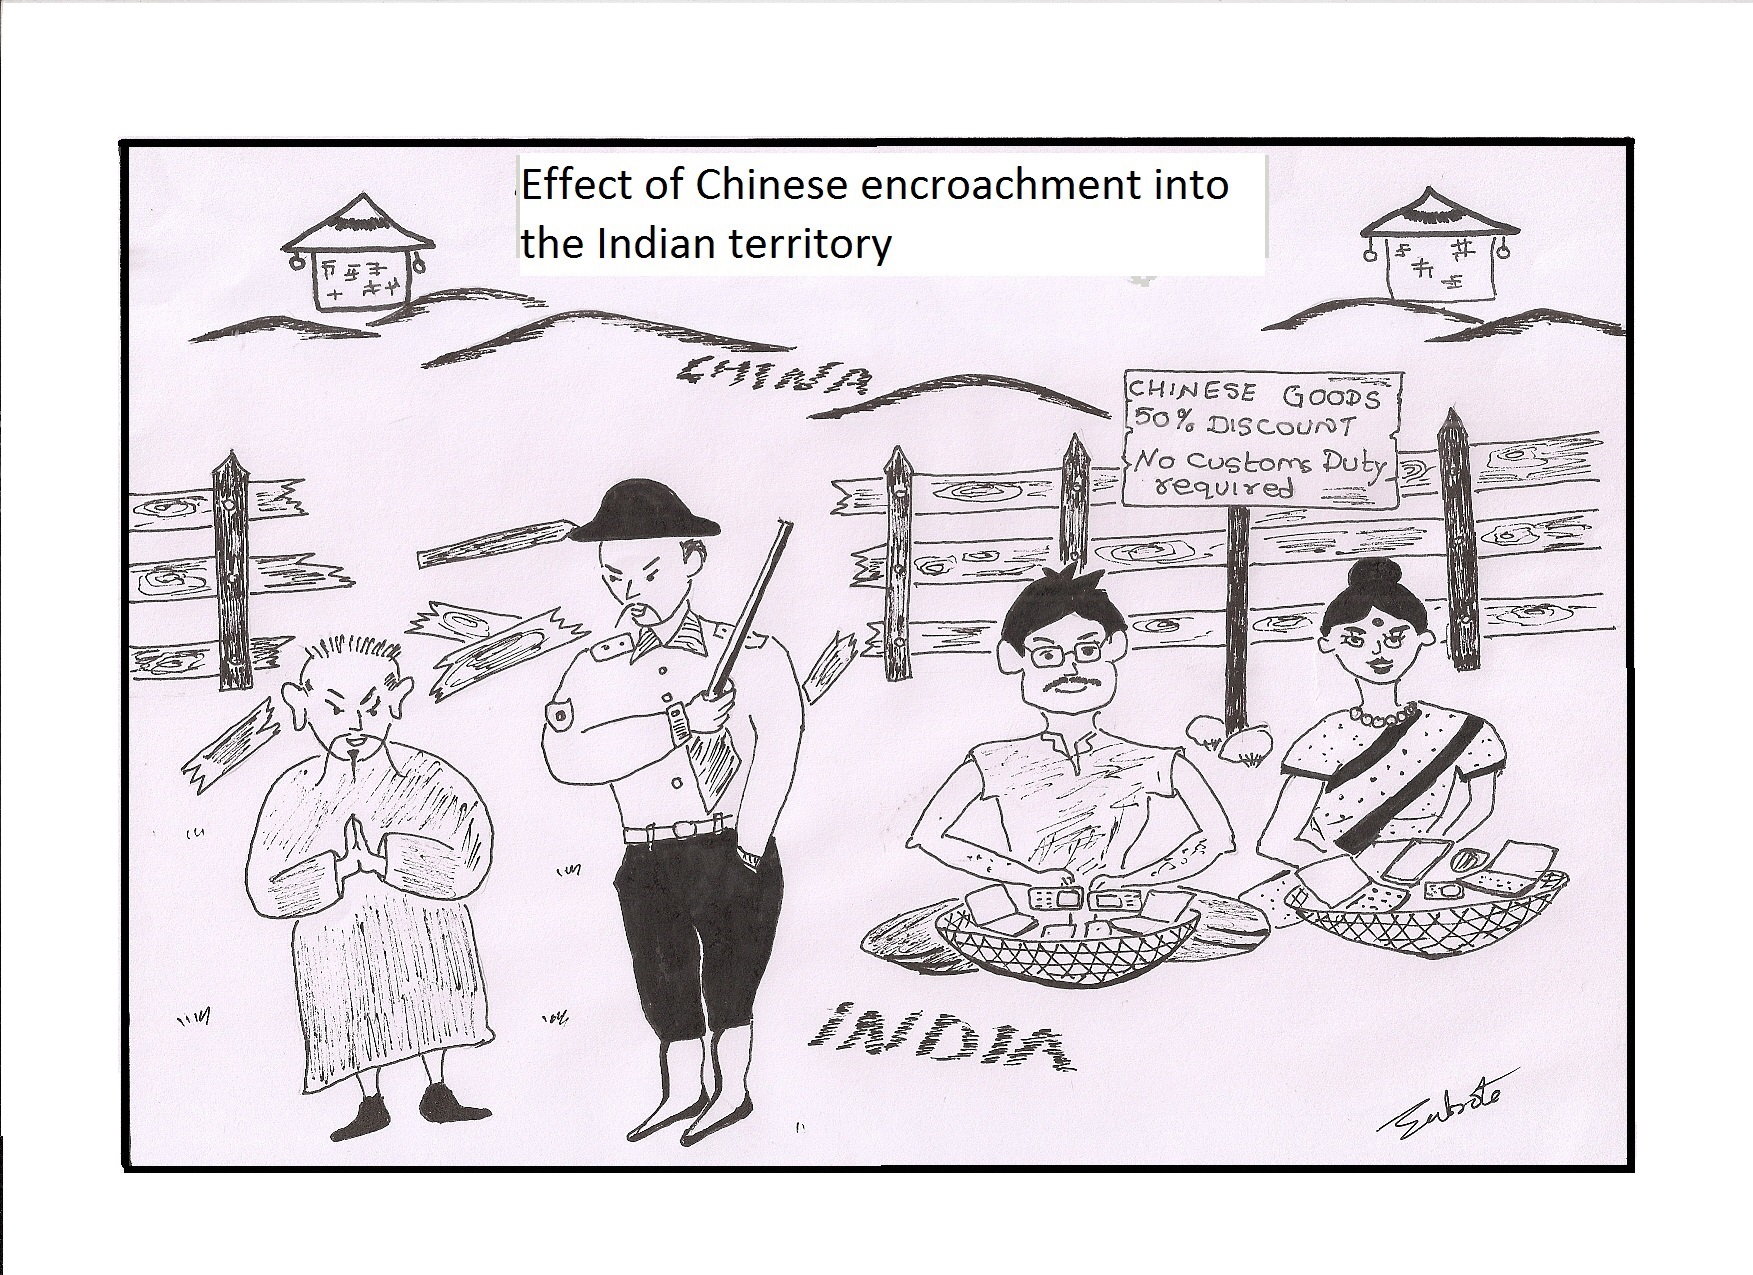 Effect of Chinese encroachment into
the Indian territory
CHINA
CHINESE GOODS
50% DISCOUNT
No Customs Duty
required
INDIA